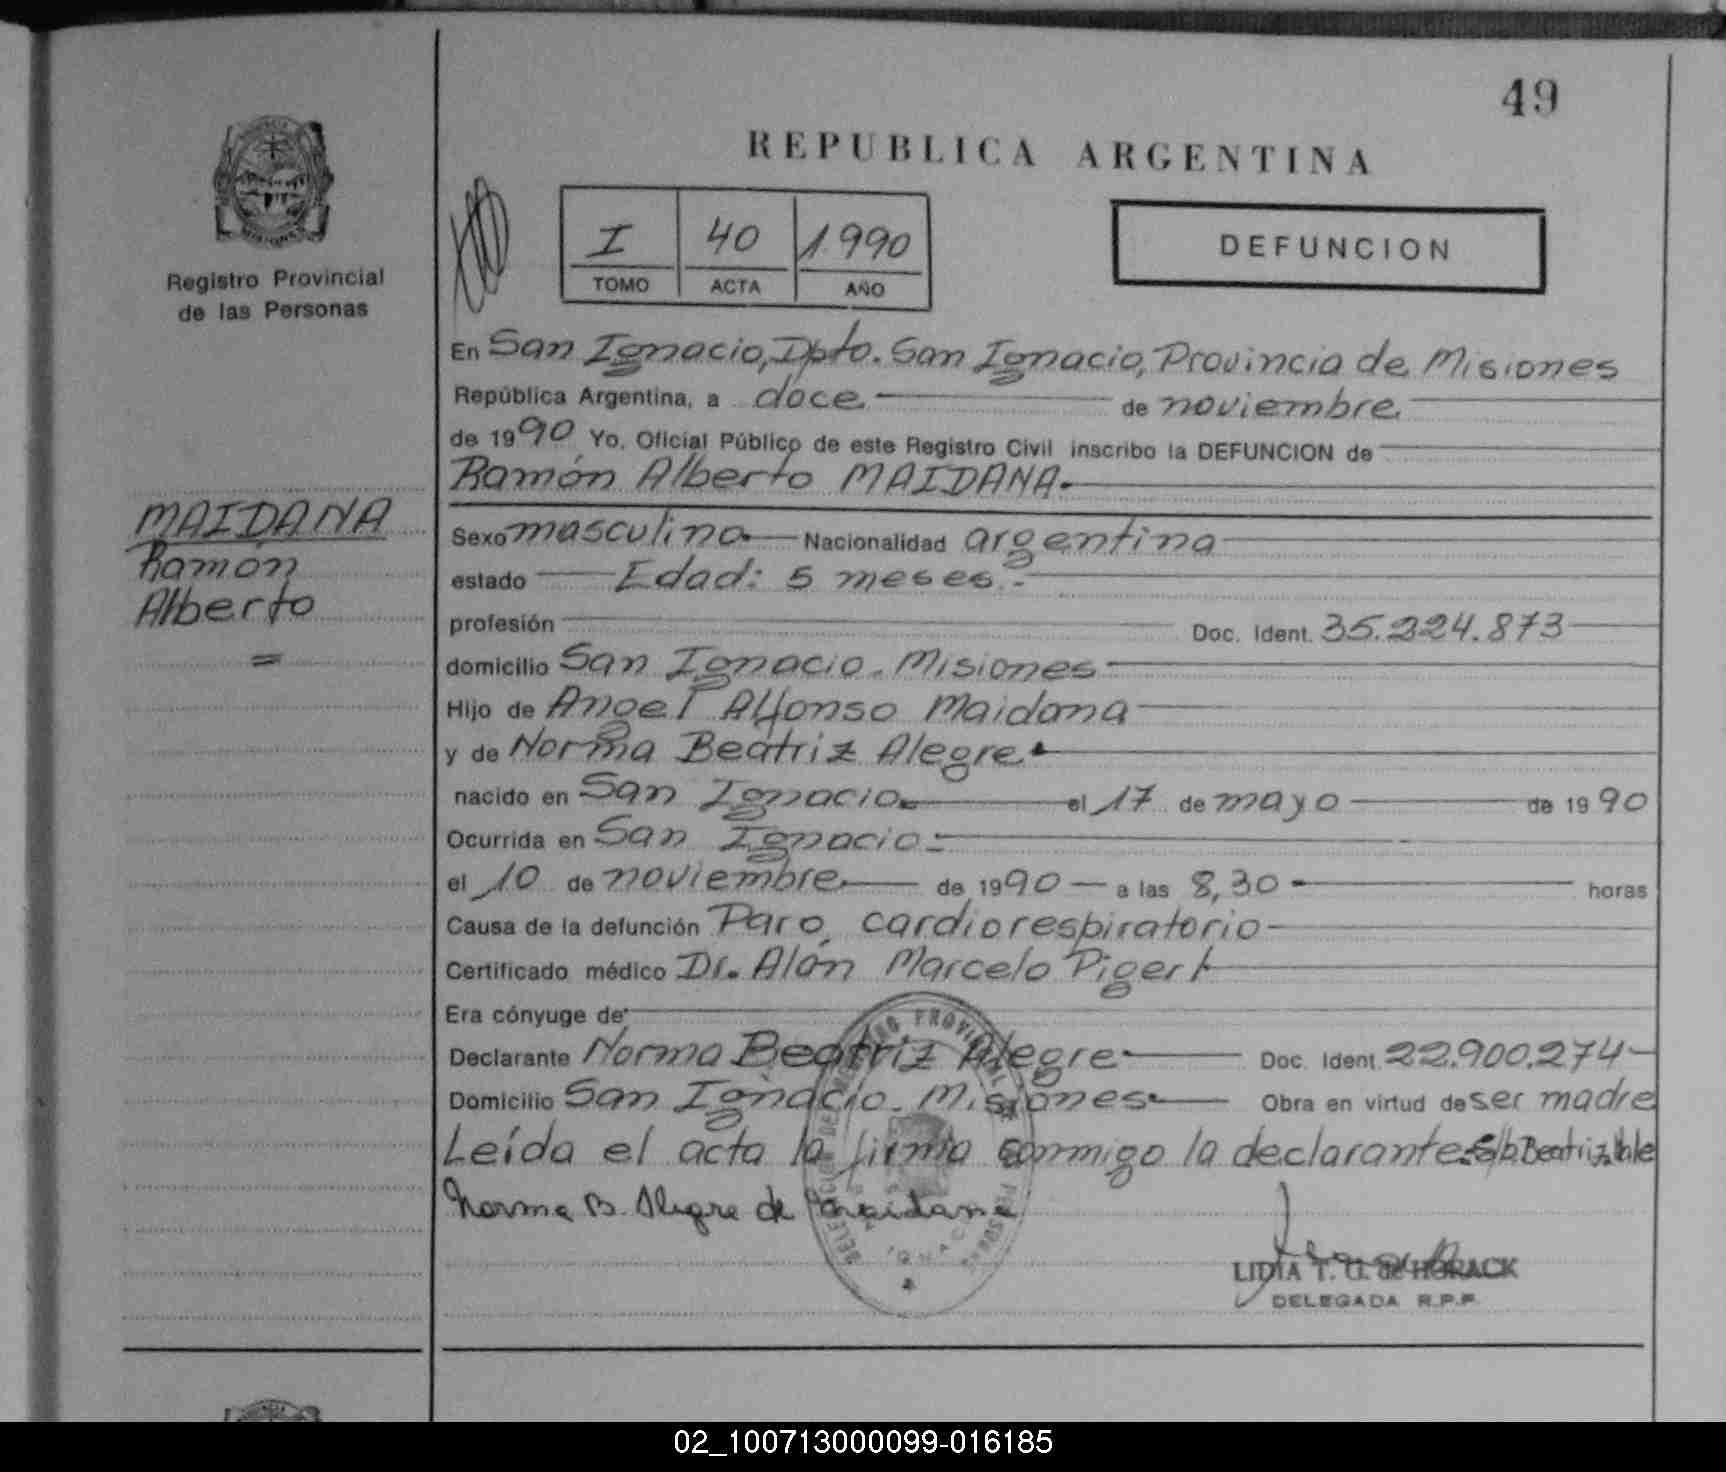 49
REPUBLICA ARGENTINA
Registro Provincial
de las Personas
I 40 1990
TOMO ACTA AÑO
DEFUNCION
En San Ignacio, Dpto. San Ignacio, Provincia de Misiones
República Argentina, a doce de noviembre
de 1990 Yo, Oficial Público de este Registro Civil inscribo la DEFUNCION de
Ramón Alberto MAIDANA.
MAIDANA
Ramón
Alberto
Sexo masculino Nacionalidad argentina
estado Edad: 5 meses.
profesión Doc. Ident. 35.224.873
domicilio San Ignacio. Misiones
Hijo de Angel Alfonso Maidana
y de Norma Beatriz Alegre.
nacido en San Ignacio. el 17 de mayo de 1990
Ocurrida en San Ignacio
el 10 de noviembre de 1990 a las 8,30 horas
Causa de la defunción Paro cardiorespiratorio
Certificado médico Dr. Alán Marcelo Pigert
Era cónyuge de
Declarante Norma Beatriz Alegre Doc. Ident. 22.900.274
Domicilio San Ignacio. Misiones Obra en virtud de ser madre
Leída el acta la firma conmigo la declarante. S/b Beatriz. Vale
Norma B. Alegre de Maidana
LIDIA T. G. de HORACK
DELEGADA R.P.P.
02_100713000099-016185